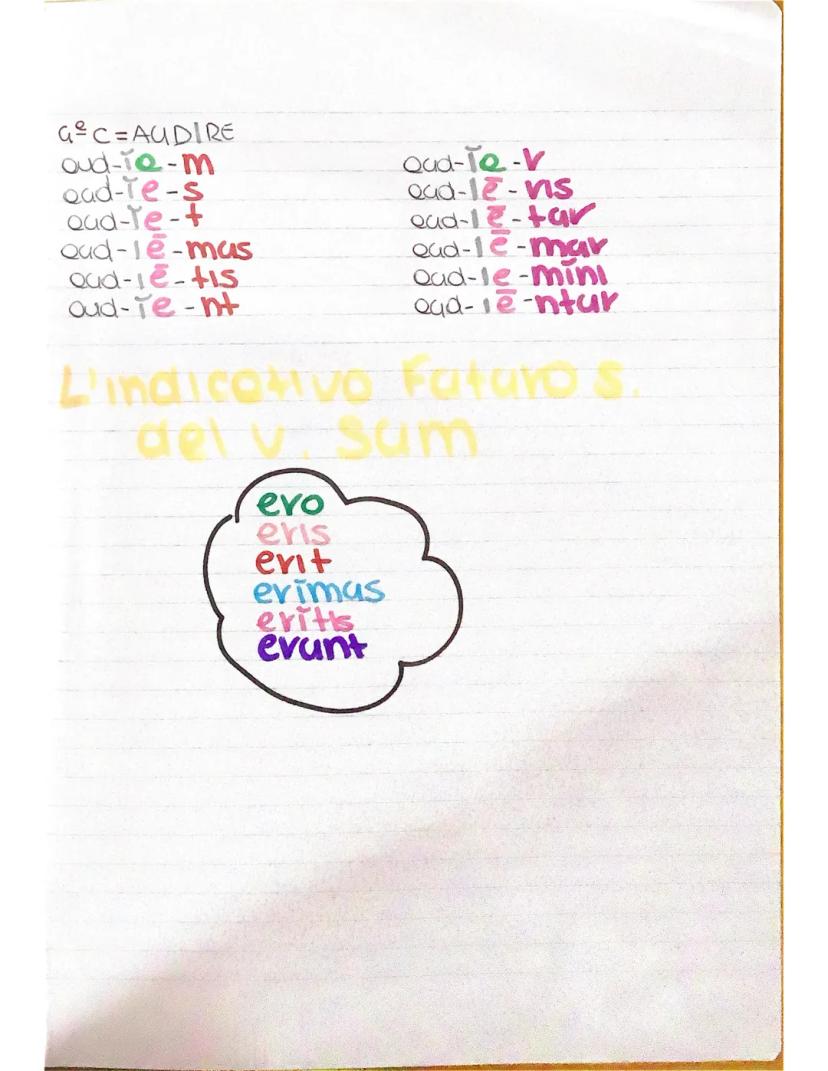 4ª C = AUDIRE
aud-ĭa-m
aud-ĭe-s
aud-ĭe-t
aud-iē-mus
aud-iē-tis
aud-ĭe-nt
aud-ĭa-r
aud-iē-ris
aud-iē-tur
aud-iē-mur
aud-ie-mĭni
aud-iē-ntur
L'indicativo Futuro s.
del v. Sum
ero
eris
erit
erĭmus
erĭtis
erunt